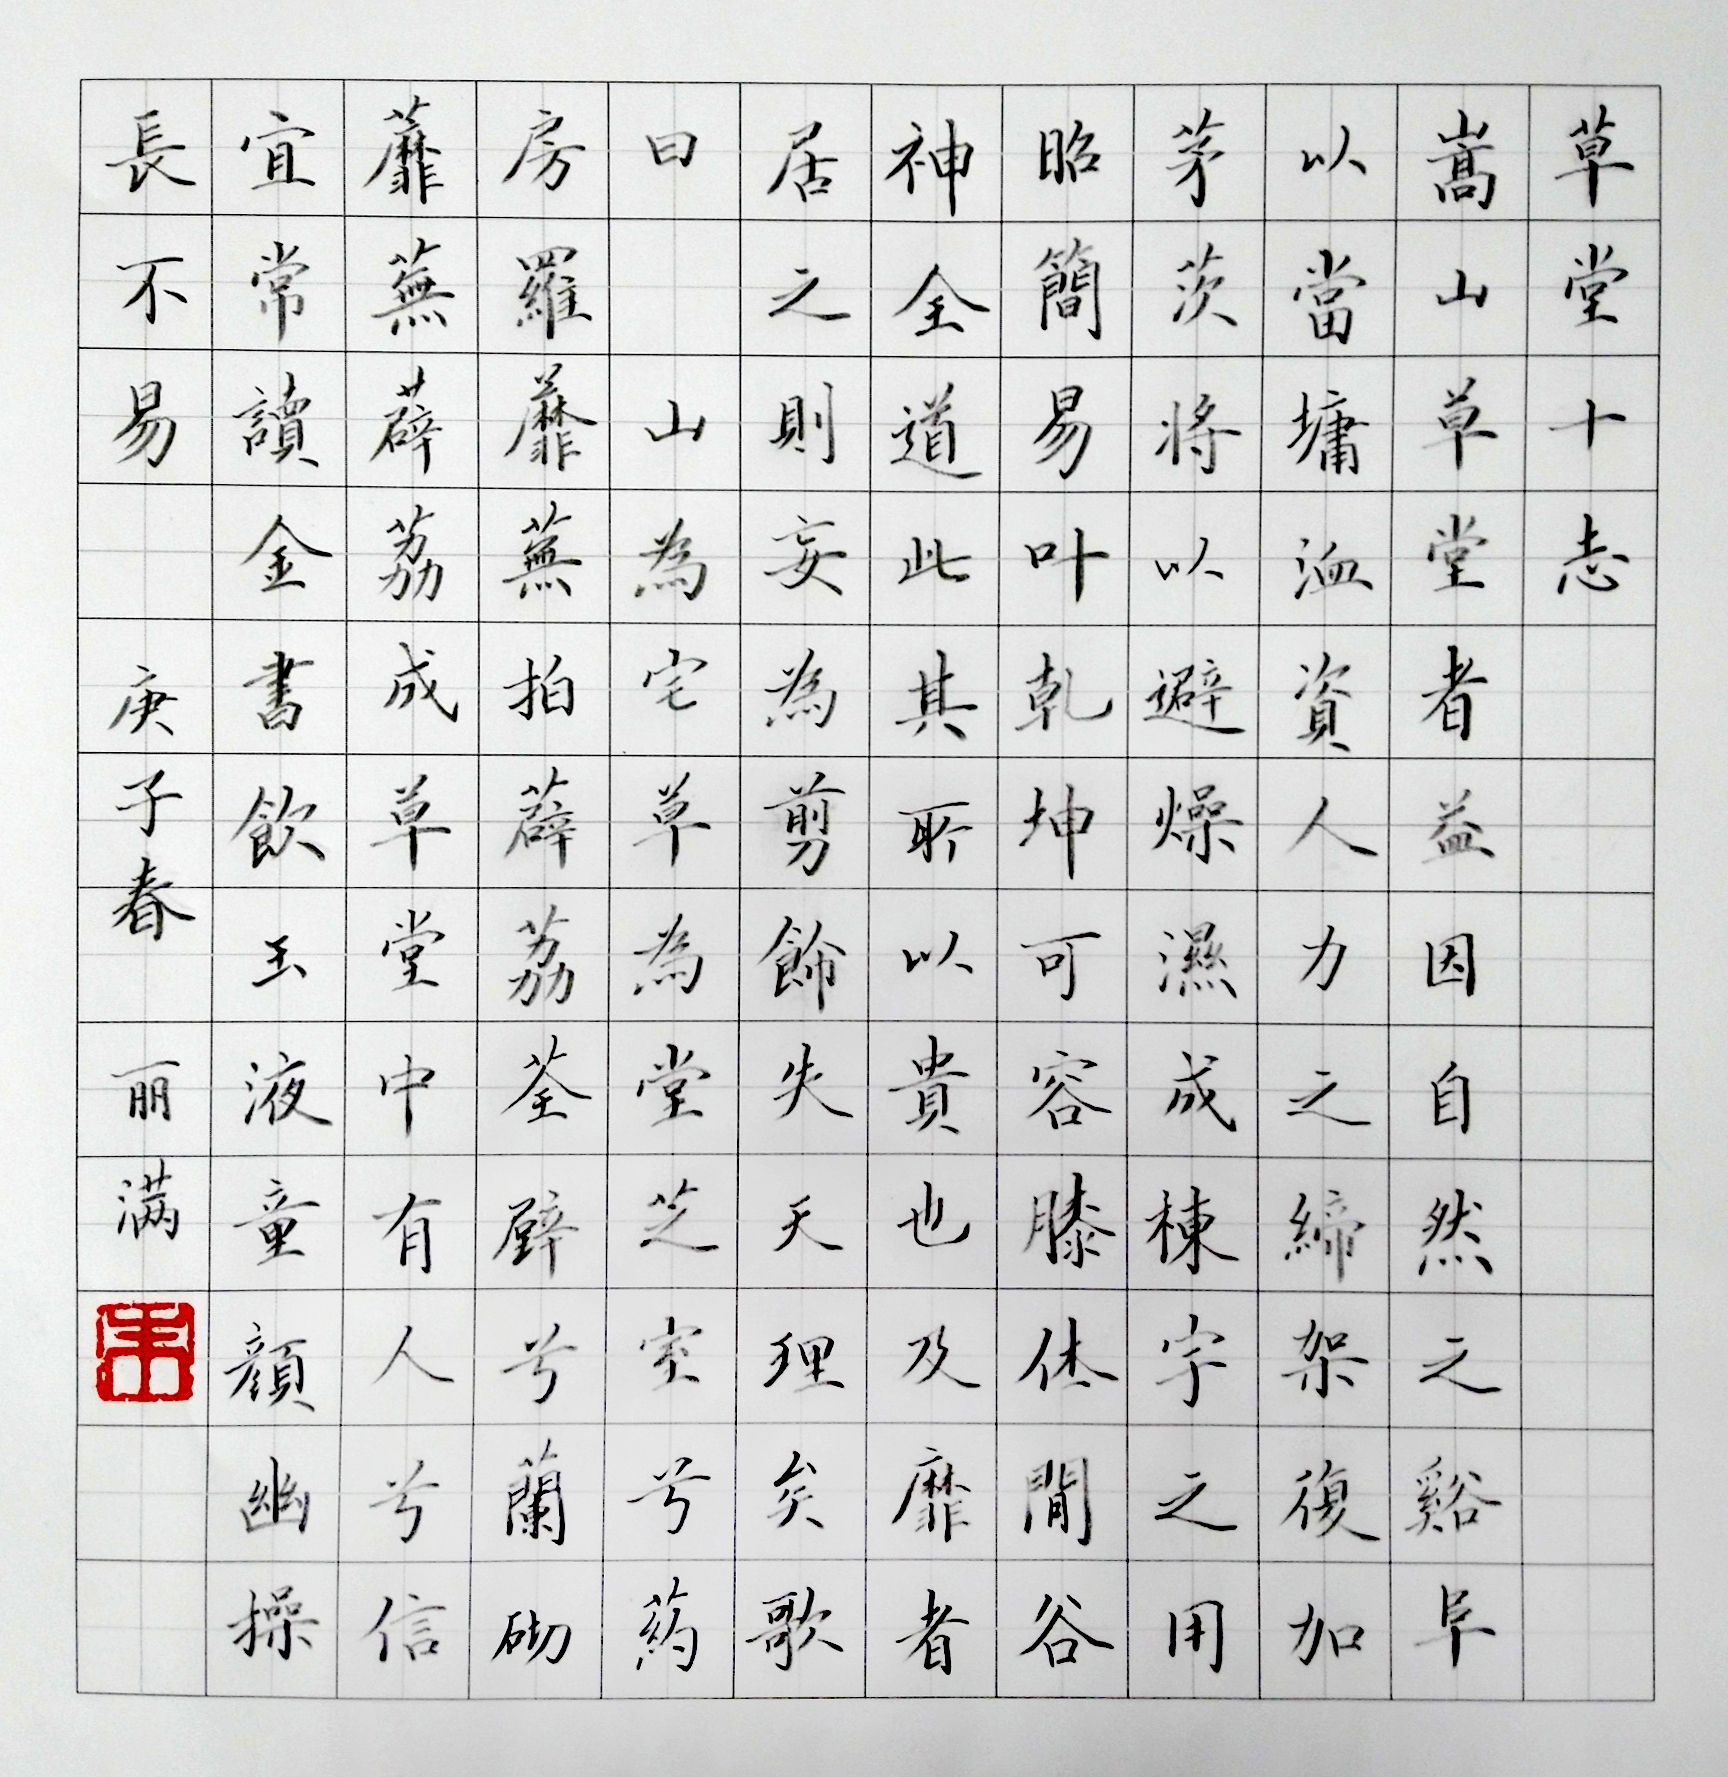 草堂十志
嵩山草堂者益因自然之谿阜
以當墉洫資人力之締架復加
茅茨將以避燥濕成棟宇之用
昭簡易叶乾坤可容膝休閒谷
神全道此其所以貴也及靡者
居之則妄為剪飾失天理矣歌
曰 山為宅草為堂芝室兮药
房羅蘼蕪拍薜荔荃壁兮蘭砌
蘼蕪薜荔成草堂中有人兮信
宜常讀金書飲玉液童顏幽操
長不易 庚子春 丽满